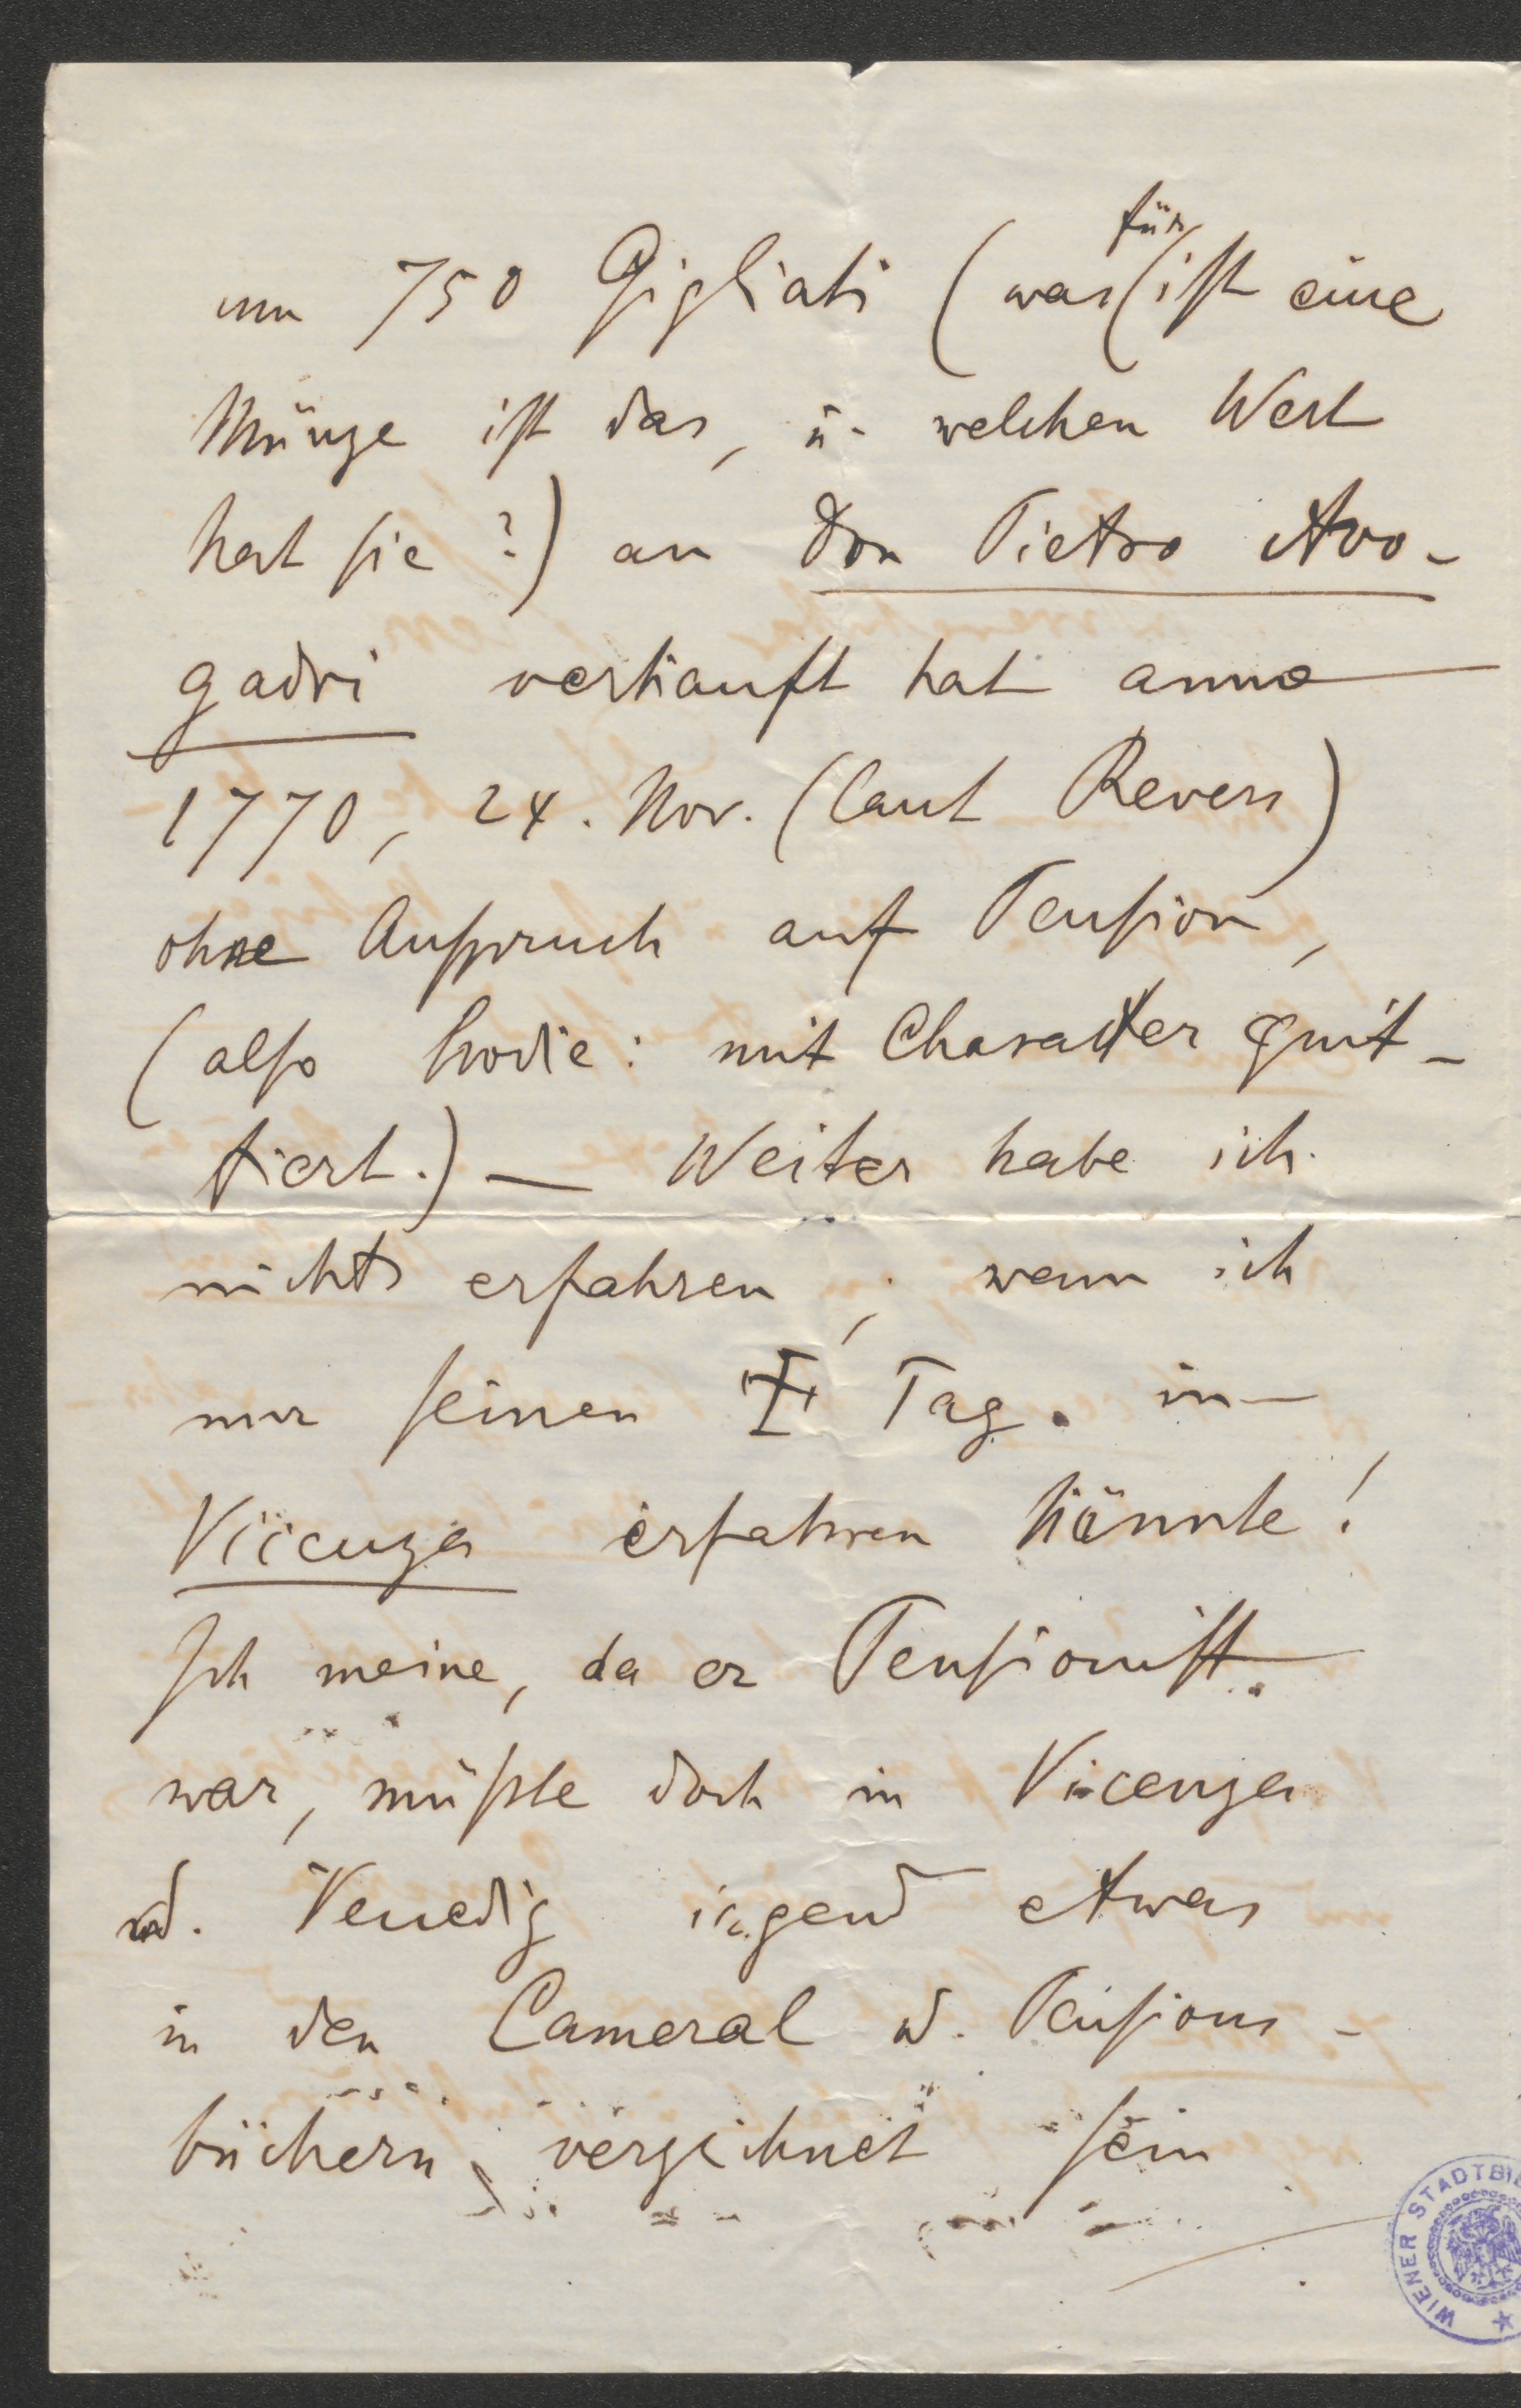 um 750 Gigliati (was für ist eine
Münze ist das, u. welchen Wert
hat sie?) an Don Pietro Avo-
gadri verkauft hat anno
1770, 24. Nov. (laut Revers)
ohne Anspruch auf Pension,
(also hodie: mit Charakter quit-
tiert.) — Weiter habe ich
nichts erfahren; wenn ich
nur seinen ‡ Tag. in
Vicenza erfahren könnte!
Ich meine, da er Pensionist
war, müßte doch in Vicenza
od. Venedig irgend etwas
in den Cameral od. Pensions-
büchern verzeichnet sein
WIENER STADTBI